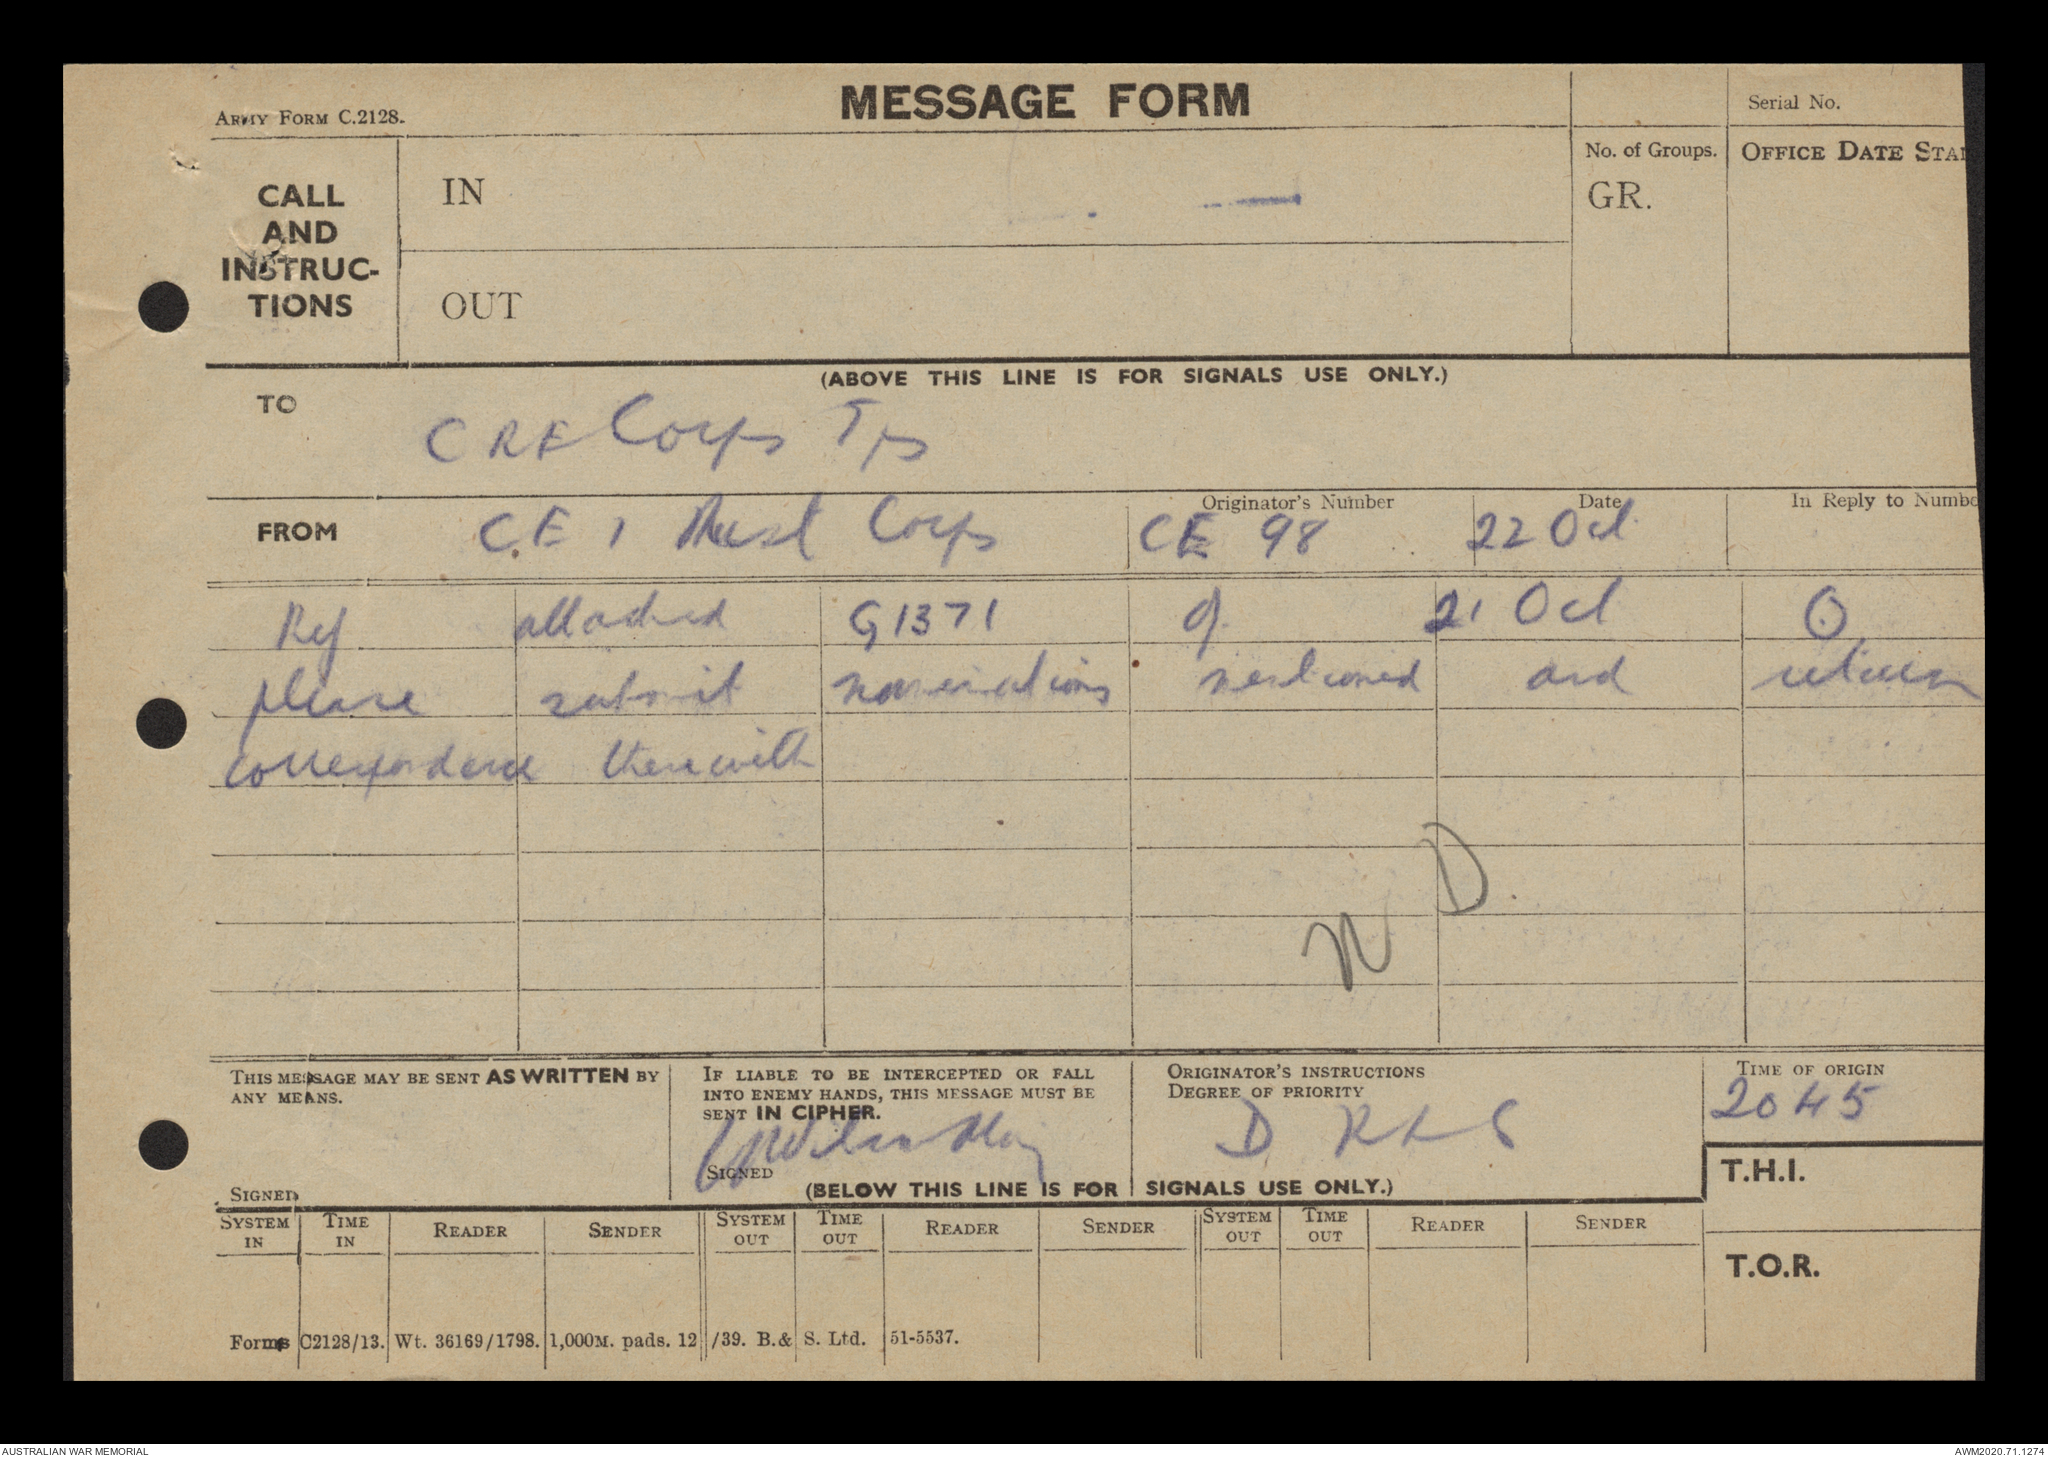 MESSAGE FORM
Army Form C.2128.
Serial No.
CALL AND INSTRUC-TIONS
IN
No. of Groups.
GR.
OFFICE DATE STA
OUT
(ABOVE THIS LINE IS FOR SIGNALS USE ONLY.)
TO
CRE Corps Tps
FROM
CE 1 Aust Corps
Originator's Number
CE 98
Date
22 Oct
In Reply to Numbe
Ref attached G1371 of 21 Oct O
please submit nominations mentioned and return
correspondence therewith
D.
N
THIS MESSAGE MAY BE SENT AS WRITTEN BY
ANY MEANS.
SIGNED
IF LIABLE TO BE INTERCEPTED OR FALL
INTO ENEMY HANDS, THIS MESSAGE MUST BE
SENT IN CIPHER.
SIGNED
ORIGINATOR'S INSTRUCTIONS
DEGREE OF PRIORITY
D R L S
TIME OF ORIGIN
2045
(BELOW THIS LINE IS FOR SIGNALS USE ONLY.)
T.H.I.
SYSTEM IN
TIME IN
READER
SENDER
SYSTEM OUT
TIME OUT
READER
SENDER
SYSTEM OUT
TIME OUT
READER
SENDER
T.O.R.
Forms C2128/13. Wt. 36169/1798. 1,000M. pads. 12/39. B.& S. Ltd. 51-5537.
AUSTRALIAN WAR MEMORIAL
AWM2020.71.1274